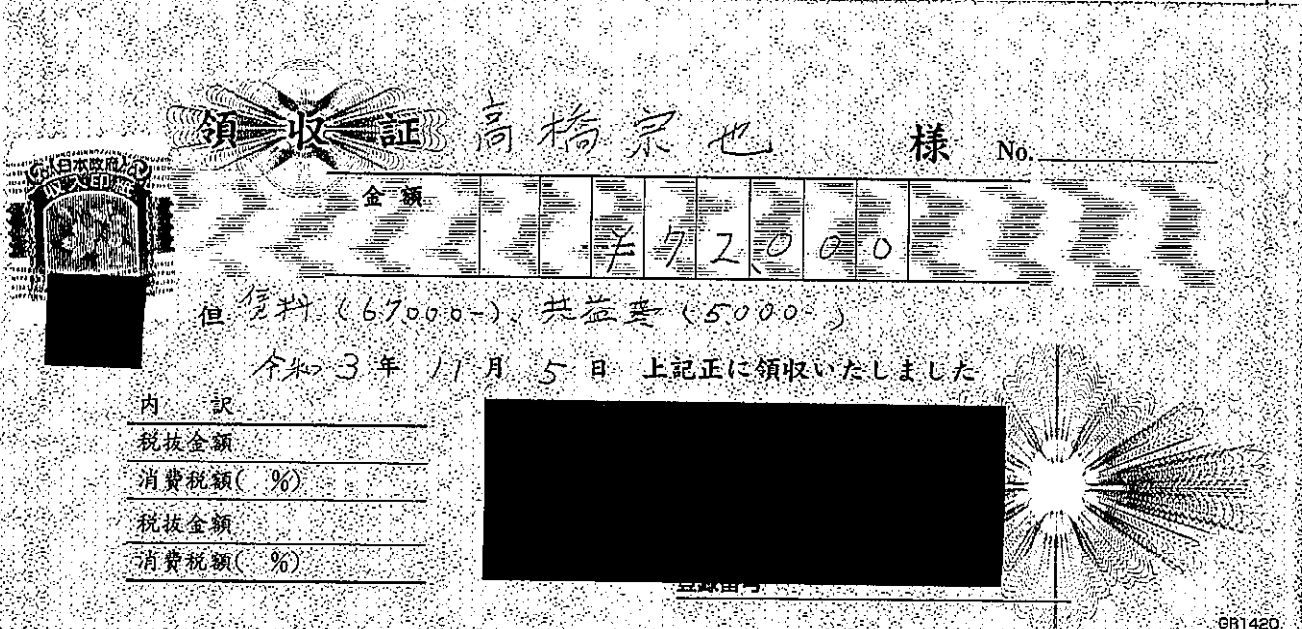 領収証 高橋宗也 様 No.
日本政府
収入印紙
金額 ¥72,000
但 賃料(67,000-)、共益費(5000-)
令和3年11月5日 上記正に領収いたしました
内訳
税抜金額
消費税額( %)
税抜金額
消費税額( %)
登録番号
GR1420